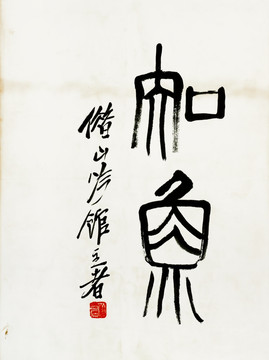 如魚
借山吟館主者